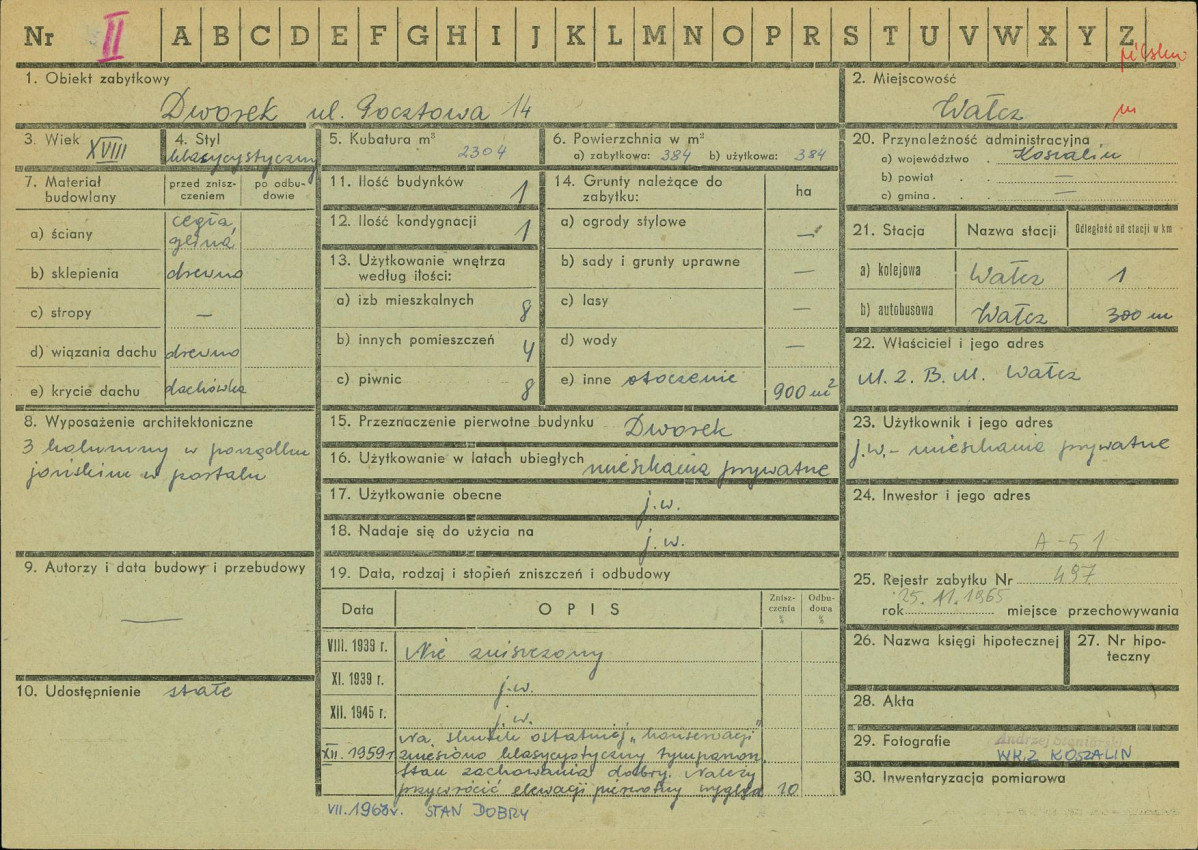 Nr II A B C D E F G H I J K L M N O P R S T U V W X Y Z
1. Obiekt zabytkowy
Dworek ul. Pocztowa 14
2. Miejscowość
Wałcz
3. Wiek XVIII
4. Styl
klasycystyczny
5. Kubatura m³
2304
6. Powierzchnia w m²
a) zabytkowa: 384 b) użytkowa: 384
20. Przynależność administracyjna
a) województwo . Koszalin
b) powiat . . —
c) gmina . . —
7. Materiał budowlany
przed znisz-
czeniem
po odbu-
dowie
a) ściany cegła,
glina
b) sklepienia drewno
c) stropy —
d) wiązania dachu drewno
e) krycie dachu dachówka
11. Ilość budynków 1
12. Ilość kondygnacji 1
13. Użytkowanie wnętrza
według ilości:
a) izb mieszkalnych 8
b) innych pomieszczeń 4
c) piwnic 8
14. Grunty należące do
zabytku: ha
a) ogrody stylowe —
b) sady i grunty uprawne —
c) lasy —
d) wody —
e) inne otoczenie 900 m²
21. Stacja Nazwa stacji Odległość od stacji w km
a) kolejowa Wałcz 1
b) autobusowa Wałcz 300 m
22. Właściciel i jego adres
M. Z. B. M. Wałcz
8. Wyposażenie architektoniczne
3 kolumny w porządku
jońskim w portalu
15. Przeznaczenie pierwotne budynku Dworek
16. Użytkowanie w latach ubiegłych mieszkania prywatne
17. Użytkowanie obecne j.w.
18. Nadaje się do użycia na j.w.
23. Użytkownik i jego adres
j.w. – mieszkania prywatne
24. Inwestor i jego adres
A-51
9. Autorzy i data budowy i przebudowy
—
10. Udostępnienie stałe
19. Data, rodzaj i stopień zniszczeń i odbudowy
Data OPIS Znisz-
czenia
% Odbu-
dowa
%
VIII. 1939 r. Nie zniszczony
XI. 1939 r. j.w.
XII. 1945 r. j.w.
Na skutek ostatniej „konserwacji"
XII. 1959 r. zniesiono klasycystyczny tympanon
Stan zachowania dobry. Należy
przywrócić elewacji pierwotny wygląd 20
VII. 1968 r. STAN DOBRY
25. Rejestr zabytku Nr 497
rok 25.11.1965 miejsce przechowywania
26. Nazwa księgi hipotecznej
27. Nr hipo-
teczny
28. Akta
29. Fotografie
WKZ KOSZALIN
30. Inwentaryzacja pomiarowa